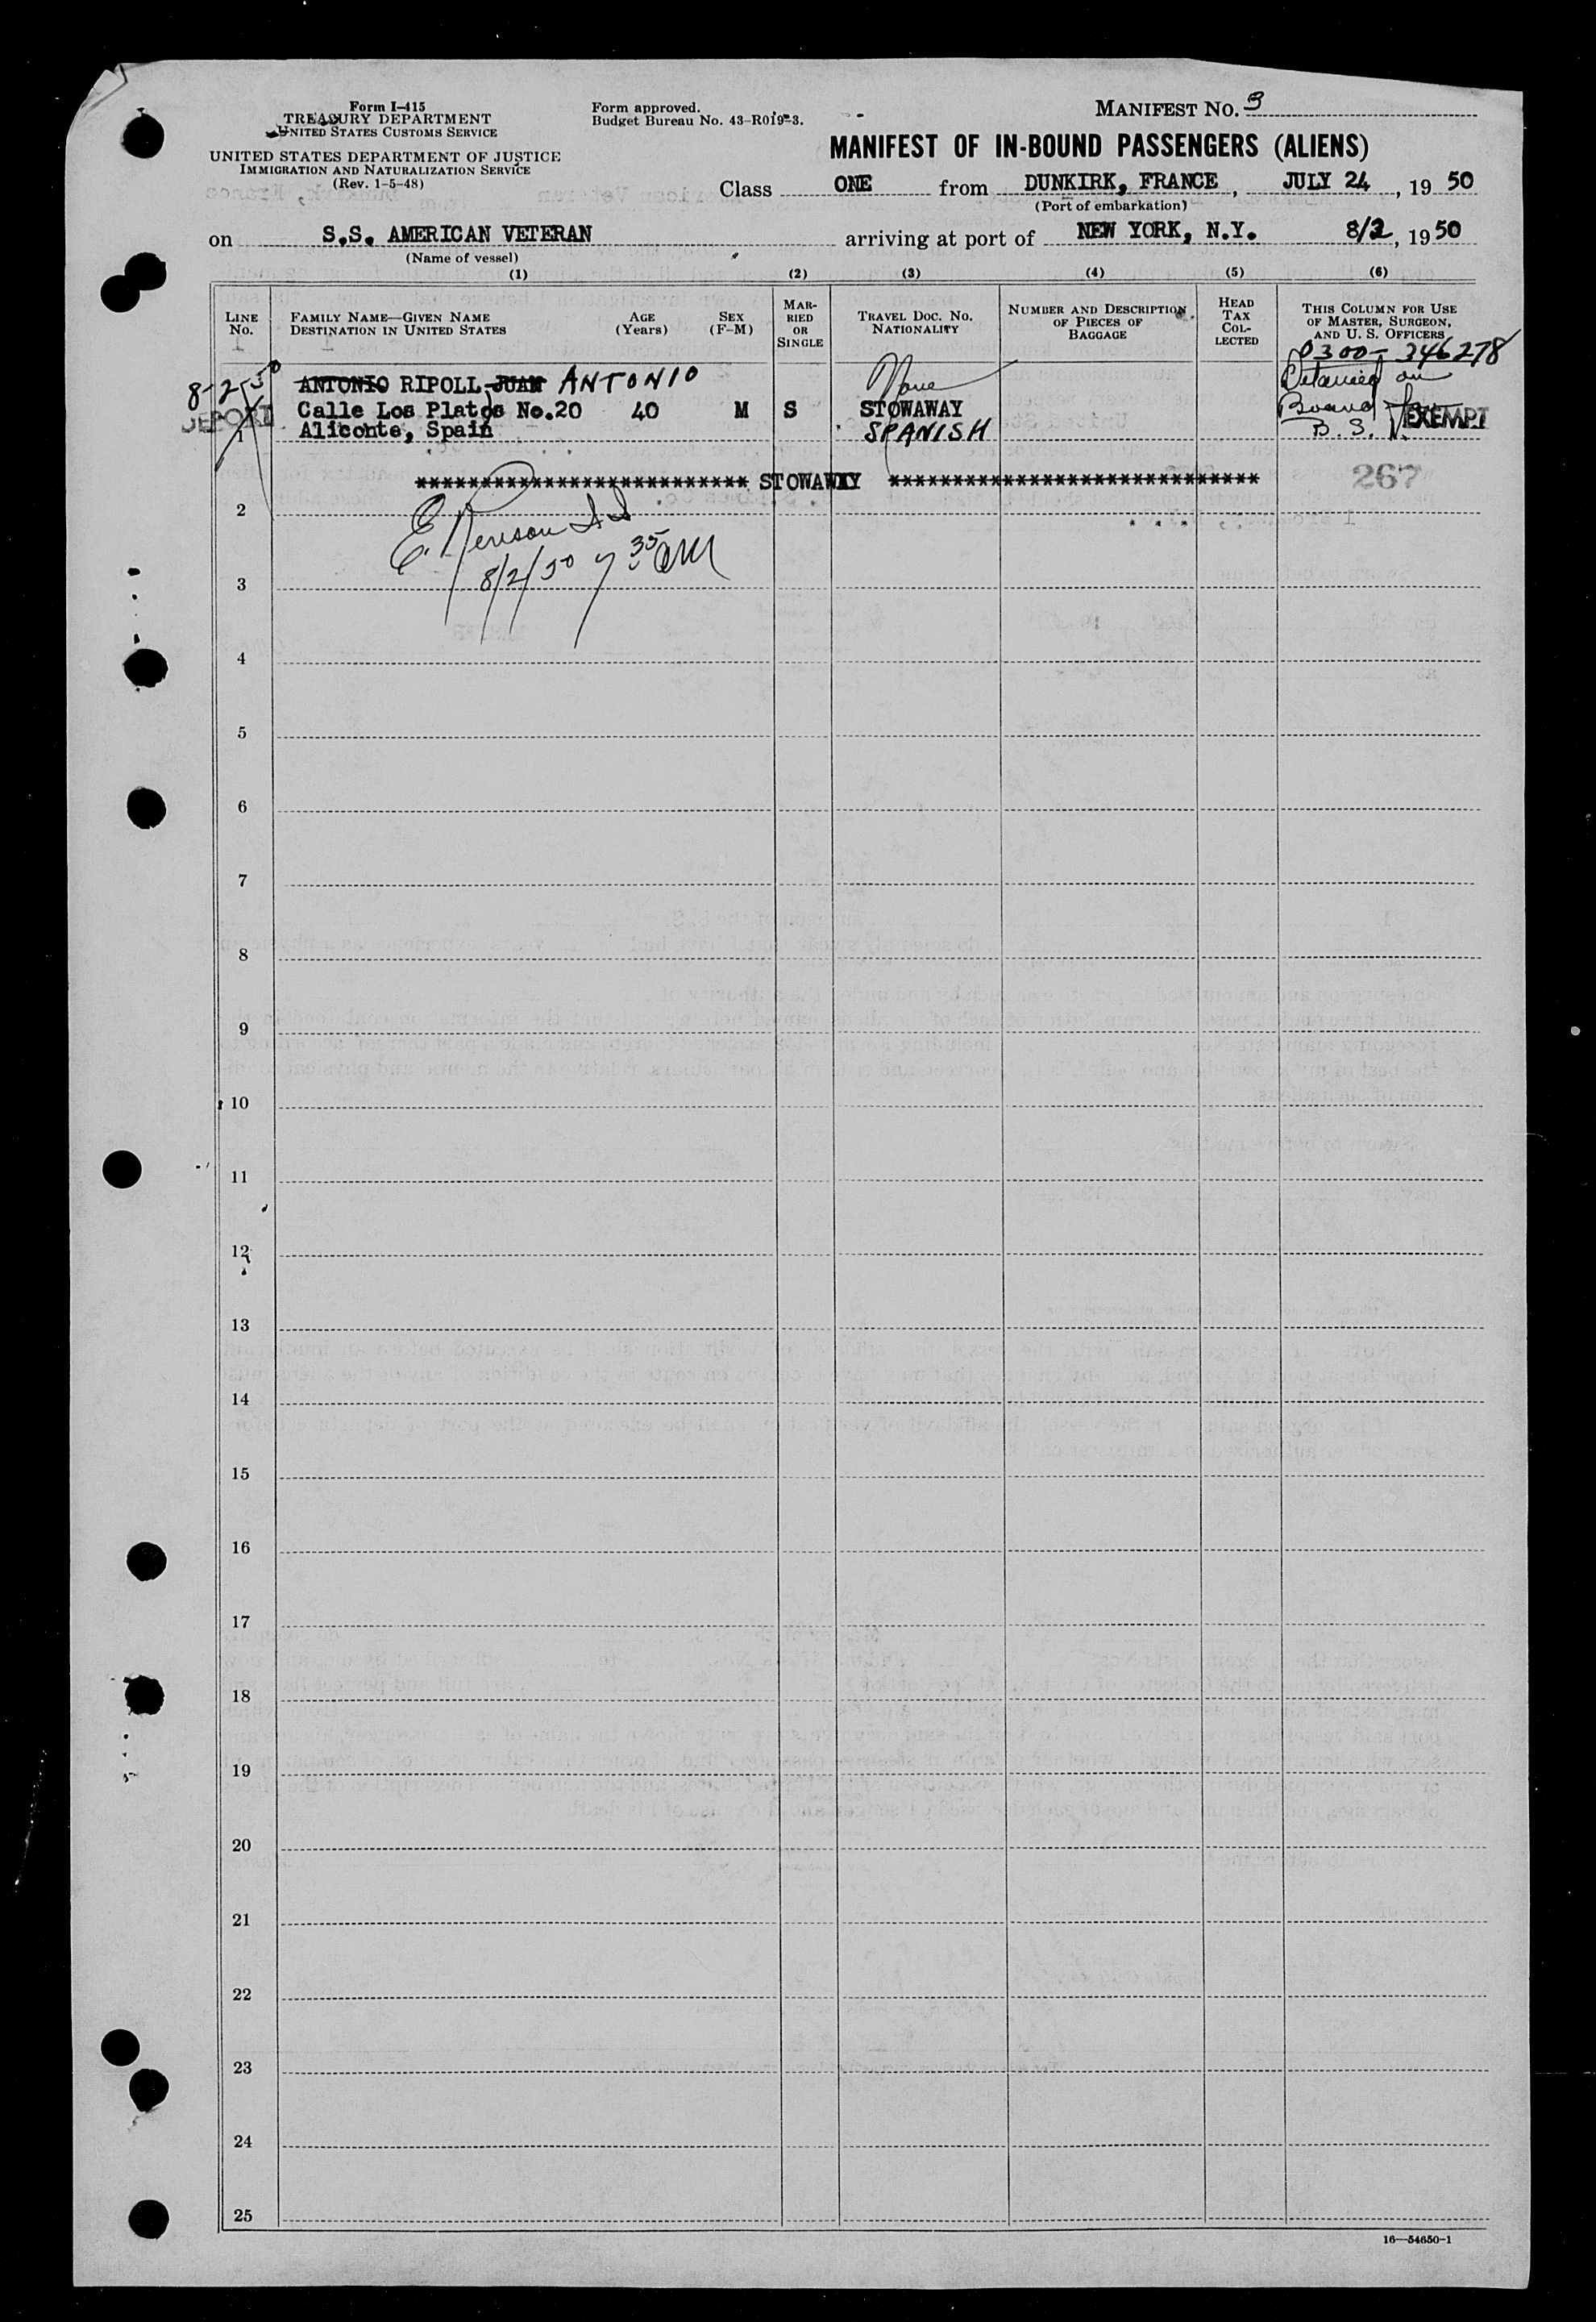 Form I-415
TREASURY DEPARTMENT
UNITED STATES CUSTOMS SERVICE
UNITED STATES DEPARTMENT OF JUSTICE
IMMIGRATION AND NATURALIZATION SERVICE
(Rev. 1-5-48)
Form approved.
Budget Bureau No. 43-R019-3.
MANIFEST NO. 3
MANIFEST OF IN-BOUND PASSENGERS (ALIENS)
Class ONE from DUNKIRK, FRANCE, JULY 24, 1950
(Port of embarkation)
on S.S. AMERICAN VETERAN arriving at port of NEW YORK, N.Y. 8/2, 1950
(Name of vessel)
(1) (2) (3) (4) (5) (6)
LINE No.
FAMILY NAME—GIVEN NAME
DESTINATION IN UNITED STATES
AGE (Years)
SEX (F-M)
MARRIED OR SINGLE
TRAVEL DOC. NO. NATIONALITY
NUMBER AND DESCRIPTION OF PIECES OF BAGGAGE
HEAD TAX COLLECTED
THIS COLUMN FOR USE OF MASTER, SURGEON, AND U. S. OFFICERS
0300-346278
8-2-50
ANTONIO RIPOLL JUAN ANTONIO None Detained on
DEPORT Calle Los Platos No.20 40 M S STOWAWAY Board EXEMPT
1 Aliconte, Spain SPANISH B. S. I.
************************** STOWAWAY ***************************** 267
2
8/2/50 7 35 AM
3
4
5
6
7
8
9
10
11
12
13
14
15
16
17
18
19
20
21
22
23
24
25
16—54650-1